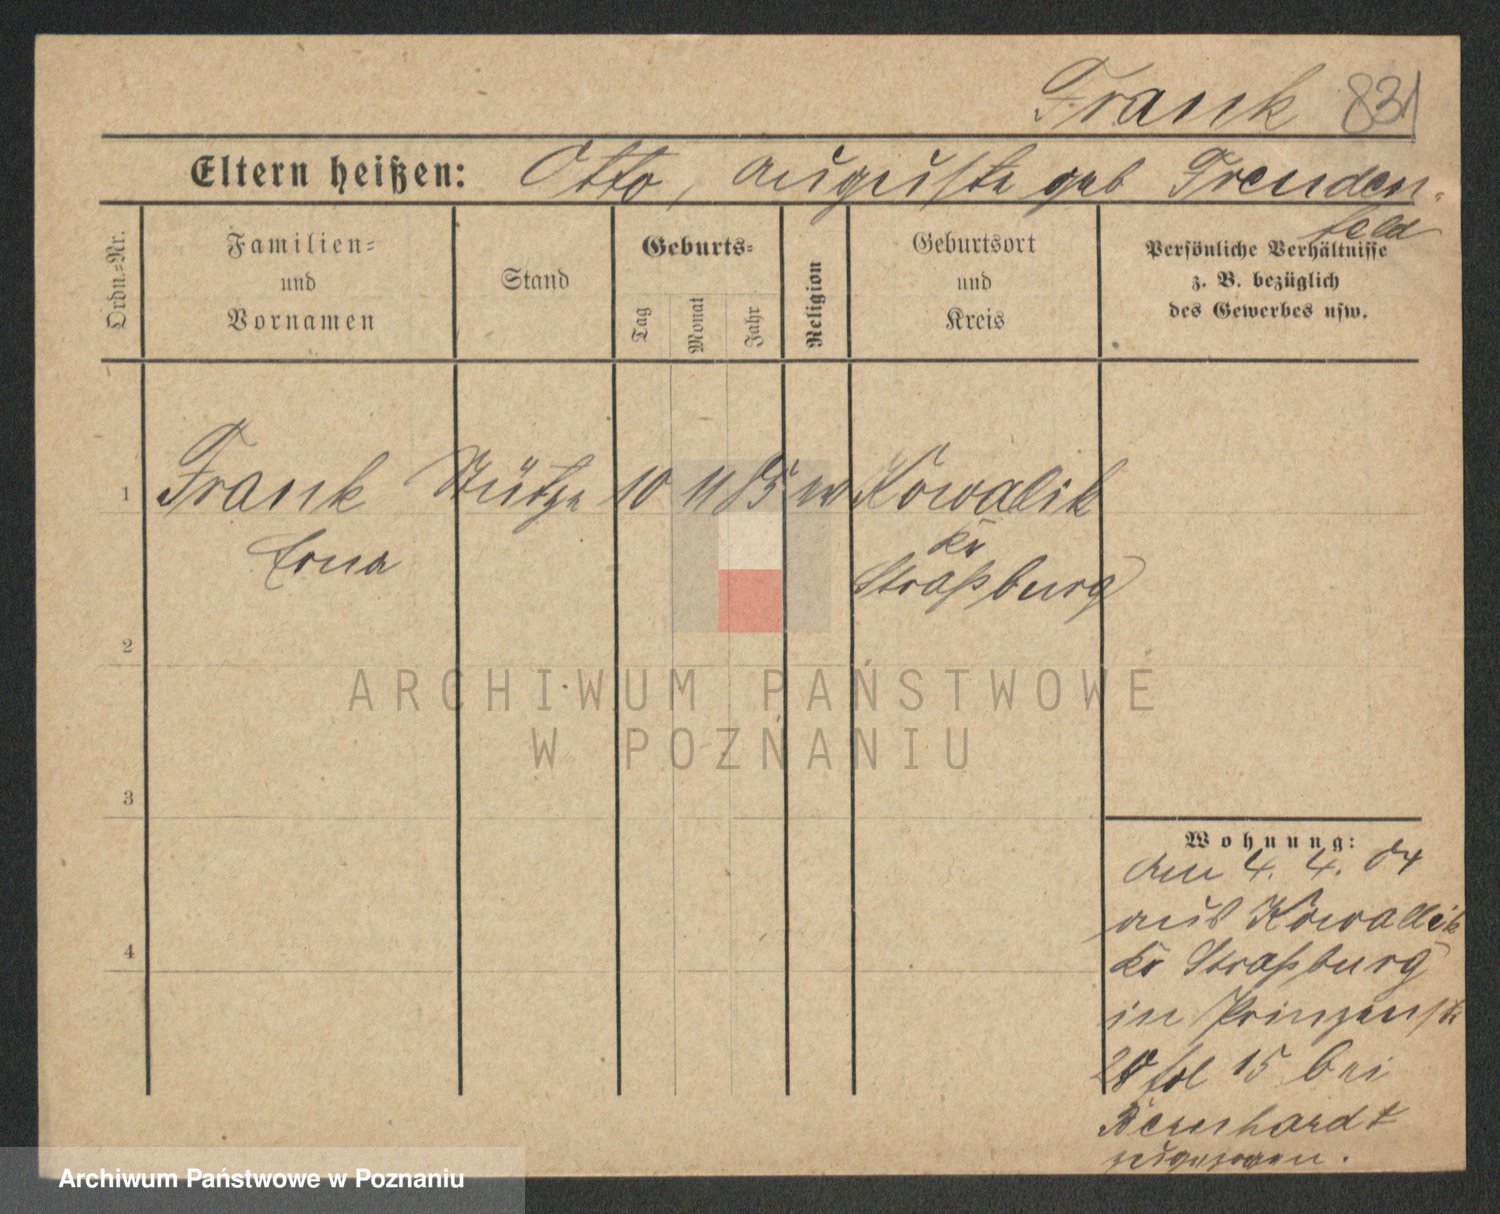 Frank 831
Eltern heißen: Otto, Auguste geb Freuden-
feld
Ordn.=Nr.
Familien=
und
Vornamen
Stand
Geburts=
Tag
Monat
Jahr
Religion
Geburtsort
und
Kreis
Persönliche Verhältnisse
z. B. bezüglich
des Gewerbes usw.
1 Frank Stütze 10 11 85 ev Kowalik
Erna
Kr
Straßburg
2
3
4
Wohnung:
Am 4. 4. 04
aus Kowallik
Kr Straßburg
in Prinzenstr
20 fol 15 bei
Bernhardt
zugezogen.
ARCHIWUM PAŃSTWOWE
W POZNANIU
Archiwum Państwowe w Poznaniu